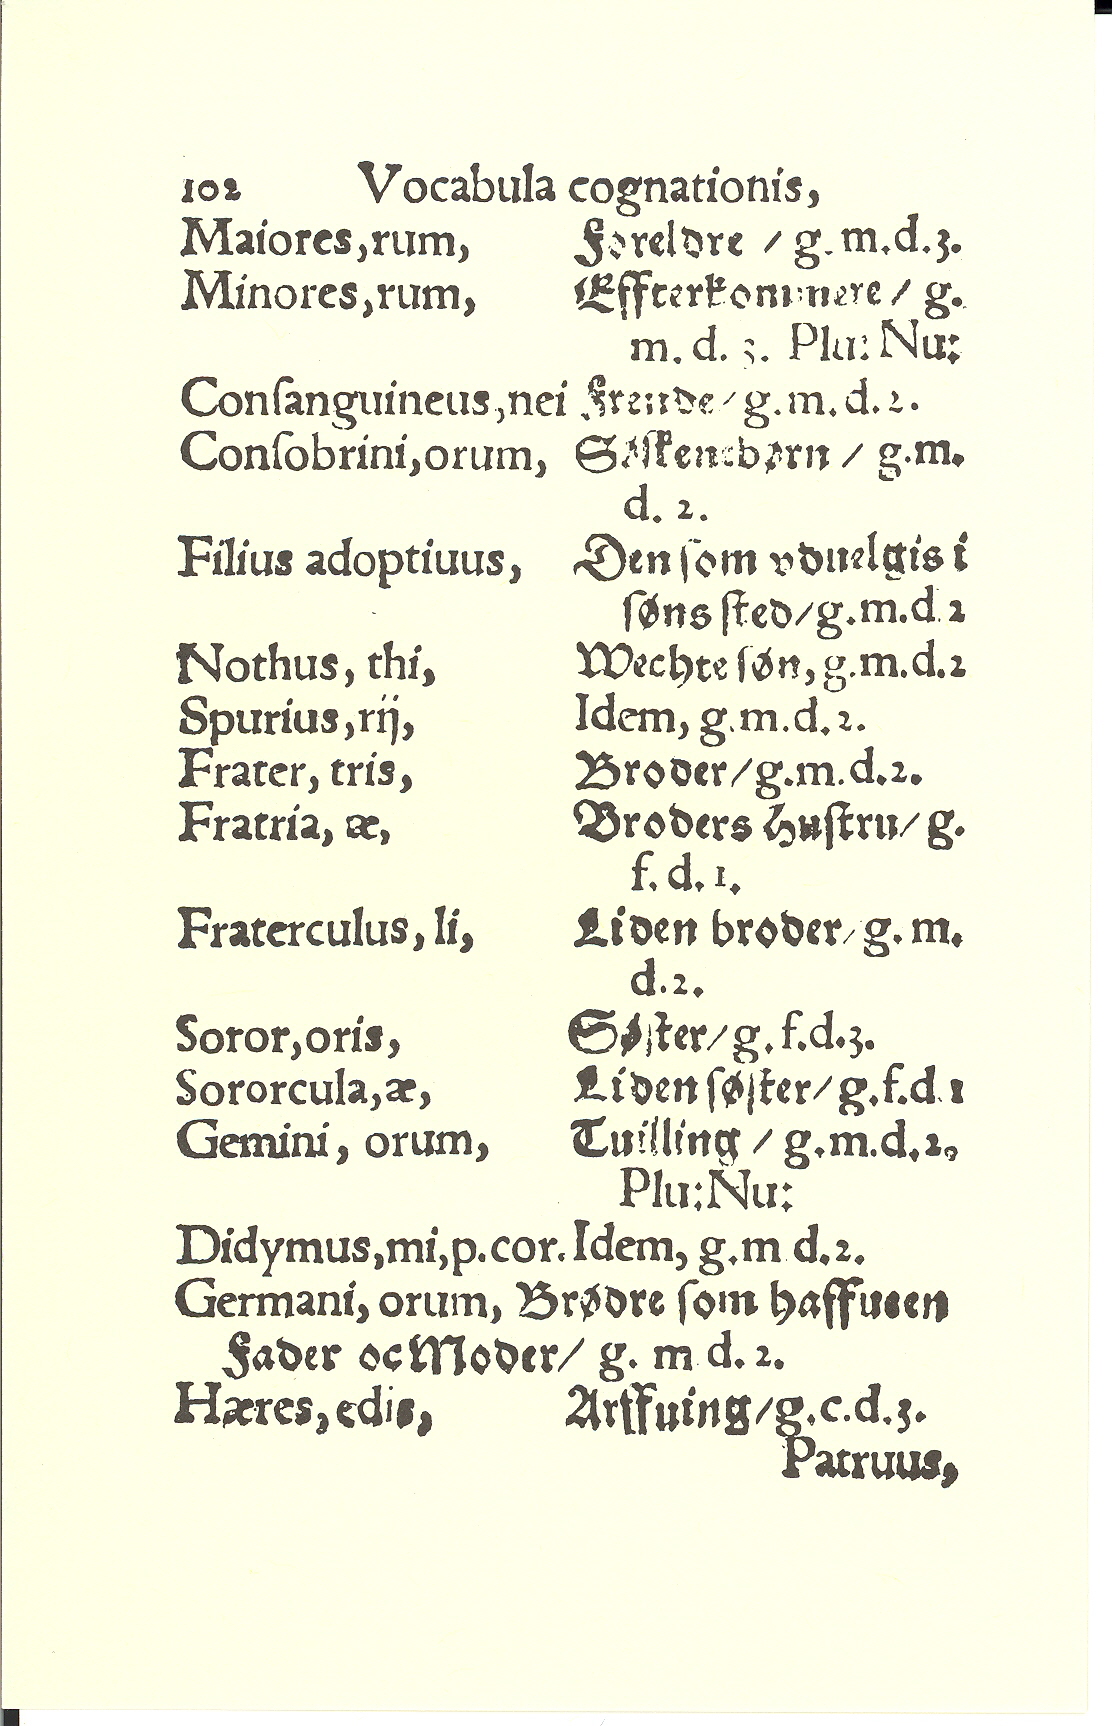 102 Vocabula cognationis,
Maiores,rum, Foreldre / g. m.d.3.
Minores,rum, Effterkommere / g.
m. d. 3. Plu: Nu:
Conſanguineus,nei Frende / g.m.d.2.
Conſobrini,orum, Søſkenebørn / g.m.
d. 2.
Filius adoptiuus, Den ſom vduelgis i
ſøns ſted/g.m.d.2
Nothus, thi, Wechte ſøn, g.m.d.2
Spurius,rij, Idem, g.m.d.2.
Frater, tris, Broder/g.m.d.2.
Fratria, æ, Broders Huſtru/ g.
f. d. 1.
Fraterculus, li, Liden broder/g. m.
d.2.
Soror,oris, Søſter/g. f.d.3.
Sororcula,æ, Liden ſøſter/g.f.d.1
Gemini, orum, Tuilling / g.m.d.2.
Plu:Nu:
Didymus,mi,p.cor. Idem, g.m d.2.
Germani, orum, Brødre ſom haffueen
Fader oc Moder/ g. m d. 2.
Hæres, edis, Arffuing/g.c.d.3.
Patruus,